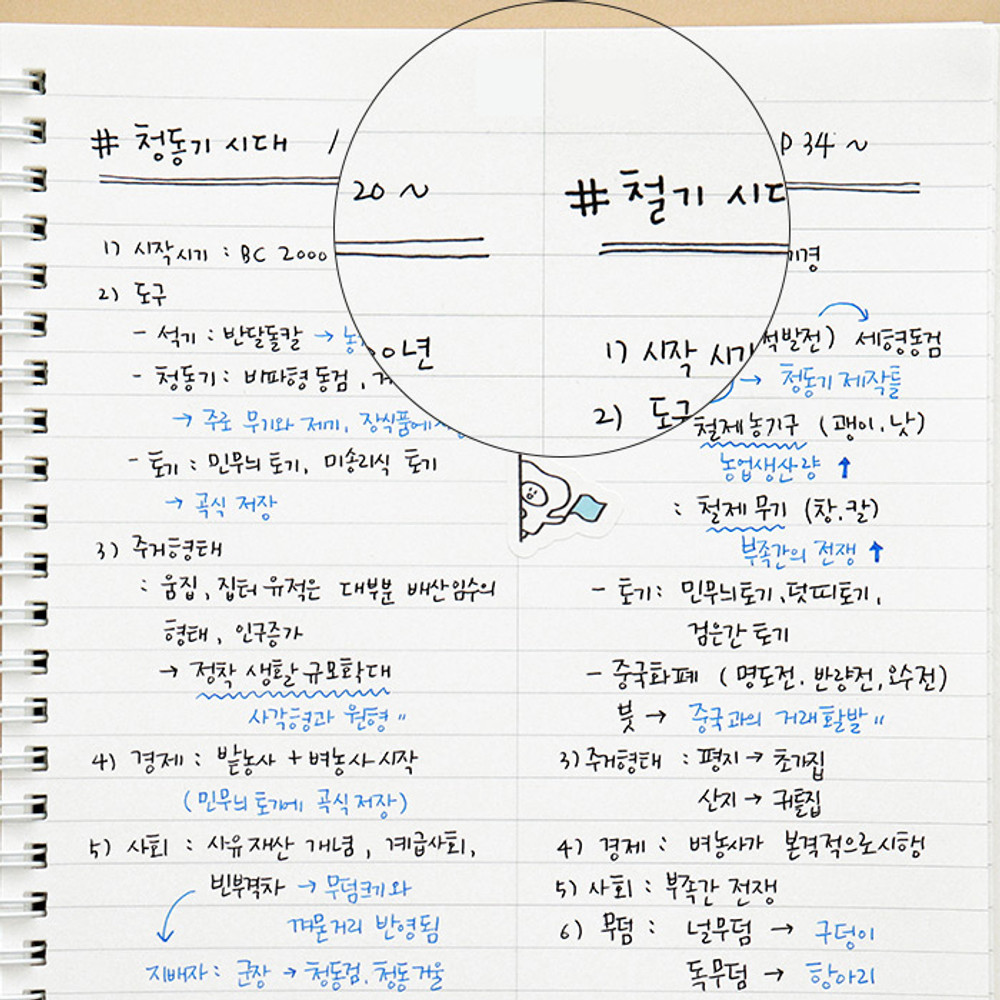 # 청동기 시대 /
20 ~
1) 시작시기 : BC 2000
00년
2) 도구
- 석기 : 반달돌칼 →
- 청동기 : 비파형동검,
→ 주로 무기와 제기, 장식품에
- 토기 : 민무늬 토기, 미송리식 토기
→ 곡식 저장
3) 주거형태
: 움집, 집터 유적은 대부분 배산임수의
형태, 인구증가
→ 정착 생활 규모확대
사각형과 원형 "
4) 경제 : 밭농사 + 벼농사 시작
(민무늬 토기에 곡식 저장)
5) 사회 : 사유재산 개념, 계급사회,
빈부격차 → 무덤크기와
껴묻거리 반영됨
지배자 : 군장 → 청동검, 청동거울
# 철기 시대
P 34 ~
1) 시작 시기
경
2) 도구
석발전) 세형동검
→ 청동기 제작틀
철제농기구 (괭이, 낫)
농업생산량 ↑
: 철제 무기 (창, 칼)
부족간의 전쟁 ↑
- 토기 : 민무늬토기, 덧띠토기,
검은간 토기
- 중국화폐 (명도전. 반량전, 오수전)
붓 → 중국과의 거래활발 "
3) 주거형태 : 평지 → 초가집
산지 → 귀틀집
4) 경제 : 벼농사가 본격적으로시행
5) 사회 : 부족간 전쟁
6) 무덤 : 널무덤 → 구덩이
독무덤 → 항아리